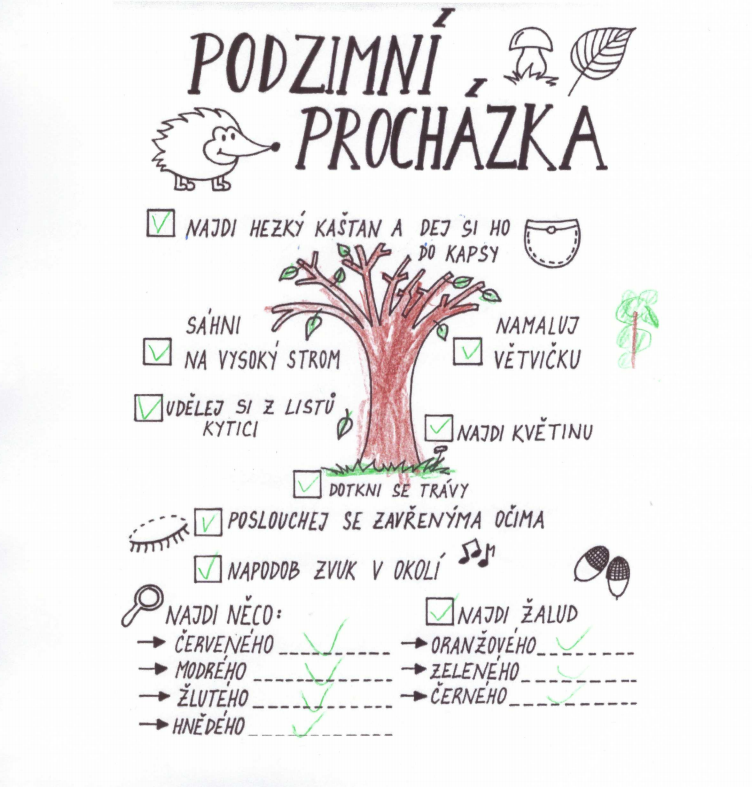 PODZIMNÍ
PROCHÁZKA
NAJDI HEZKÝ KAŠTAN A DEJ SI HO
DO KAPSY
SÁHNI
NA VYSOKÝ STROM
NAMALUJ
VĚTVIČKU
UDĚLEJ SI Z LISTŮ
KYTICI
NAJDI KVĚTINU
DOTKNI SE TRÁVY
POSLOUCHEJ SE ZAVŘENÝMA OČIMA
NAPODOB ZVUK V OKOLÍ
NAJDI NĚCO:
ČERVENÉHO
MODRÉHO
ŽLUTÉHO
HNĚDÉHO
NAJDI ŽALUD
ORANŽOVÉHO
ZELENÉHO
ČERNÉHO